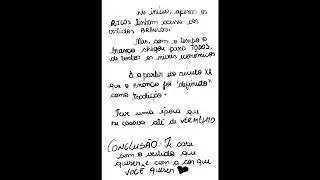 No início, apenas os
RICOS tinham acesso aos
vestidos BRANCOS.
Mas, com o tempo o
branco chegou para TODOS,
de todos os níveis econômicos
E a partir do século XX
que o BRANCO foi "definido"
como tradição.
Teve uma época que
se casava até de VERMELHO
CONCLUSÃO: Te case
com o vestido que
quiser, e com a cor que
VOCÊ quiser